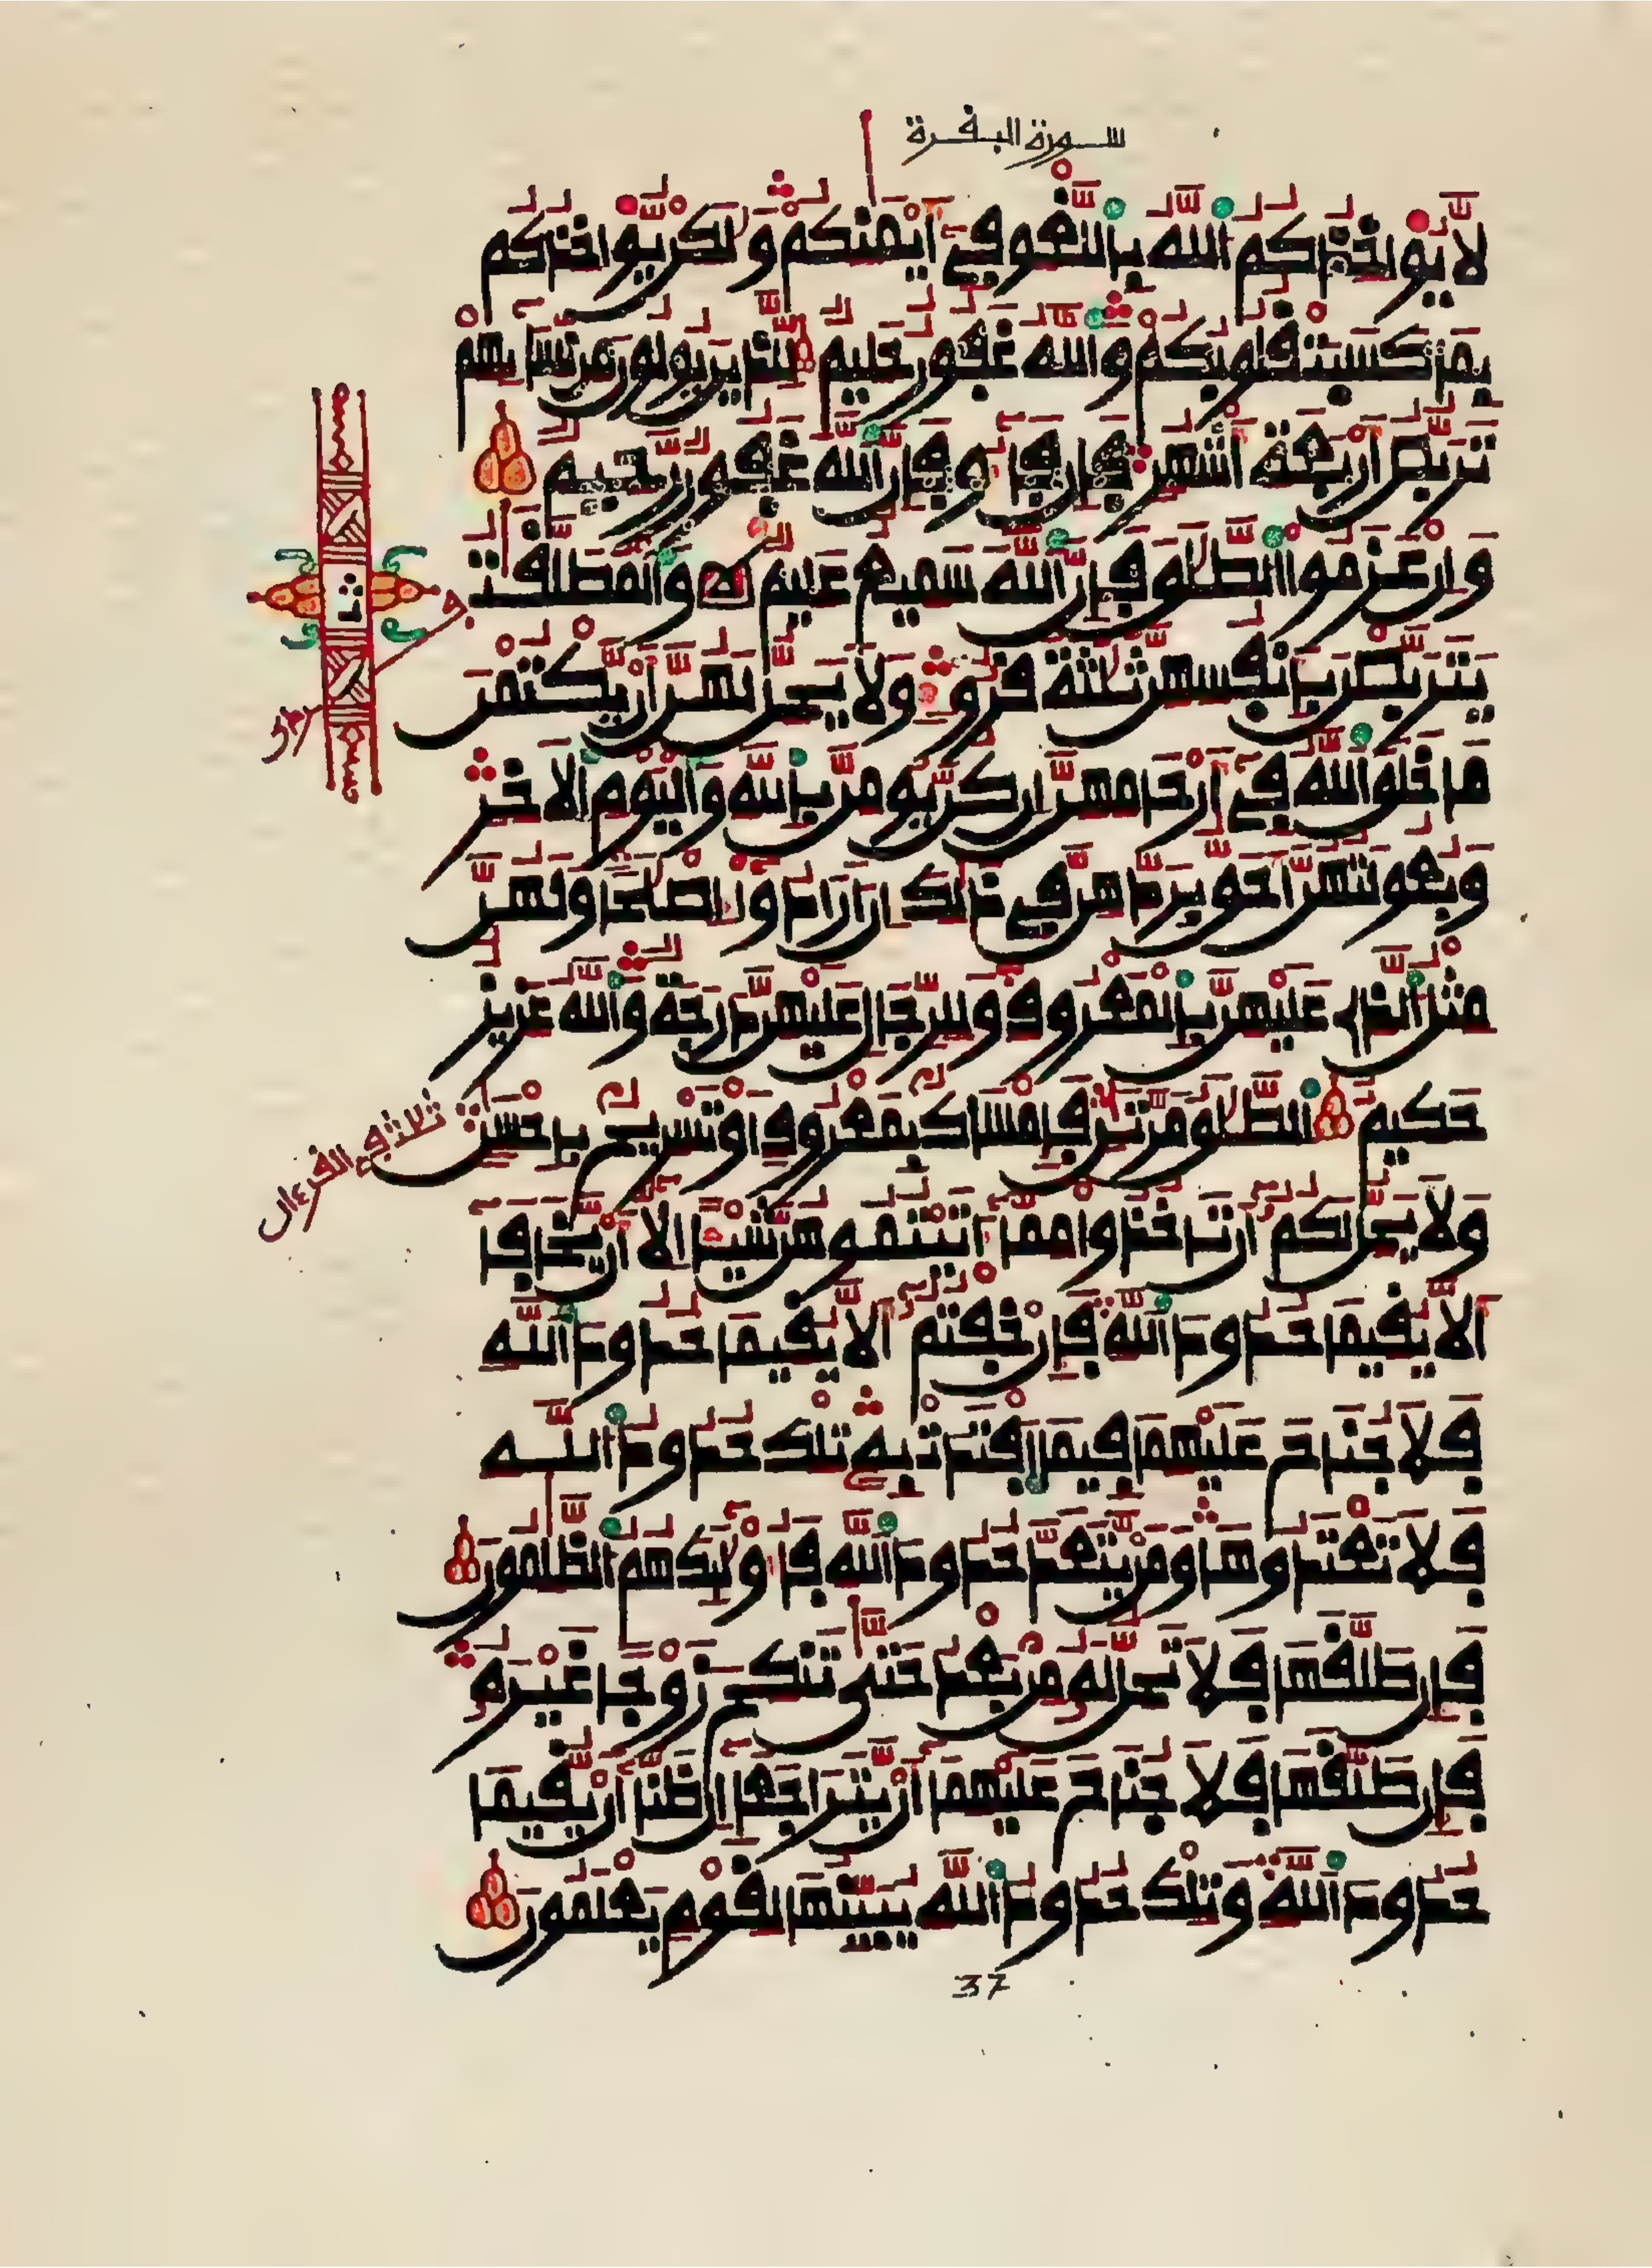 سورة البقرة
لا يواخذكم الله باللغو في أيمنكم ولكن يواخذكم
بما كسبت قلوبكم والله غفور حليم للذين يولون من نسائهم
تربص أربعة أشهر فإن فاءو فإن الله غفور رحيم
وإن عزموا الطلق فإن الله سميع عليم والمطلقت
يتربصن بأنفسهن ثلثة قروء ولا يحل لهن أن يكتمن
ما خلق الله في أرحامهن إن كن يومن بالله واليوم الاخر
وبعولتهن أحق بردهن في ذلك إن أرادوا إصلحا ولهن
مثل الذي عليهن بالمعروف وللرجال عليهن درجة والله عزيز
حكيم الطلق مرتن فإمساك بمعروف أو تسريح بإحسن
ثلاثة في القرءان
ولا يحل لكم أن تاخذوا مما ءاتيتموهن شيئا إلا أن يخافا
ألا يقيما حدود الله فإن خفتم ألا يقيما حدود الله
فلا جناح عليهما فيما افتدت به تلك حدود الله
فلا تعتدوها ومن يتعد حدود الله فأولئك هم الظلمون
فإن طلقها فلا تحل له من بعد حتى تنكح زوجا غيره
فإن طلقها فلا جناح عليهما أن يتراجعا إن ظنا أن يقيما
حدود الله وتلك حدود الله يبينها لقوم يعلمون
37